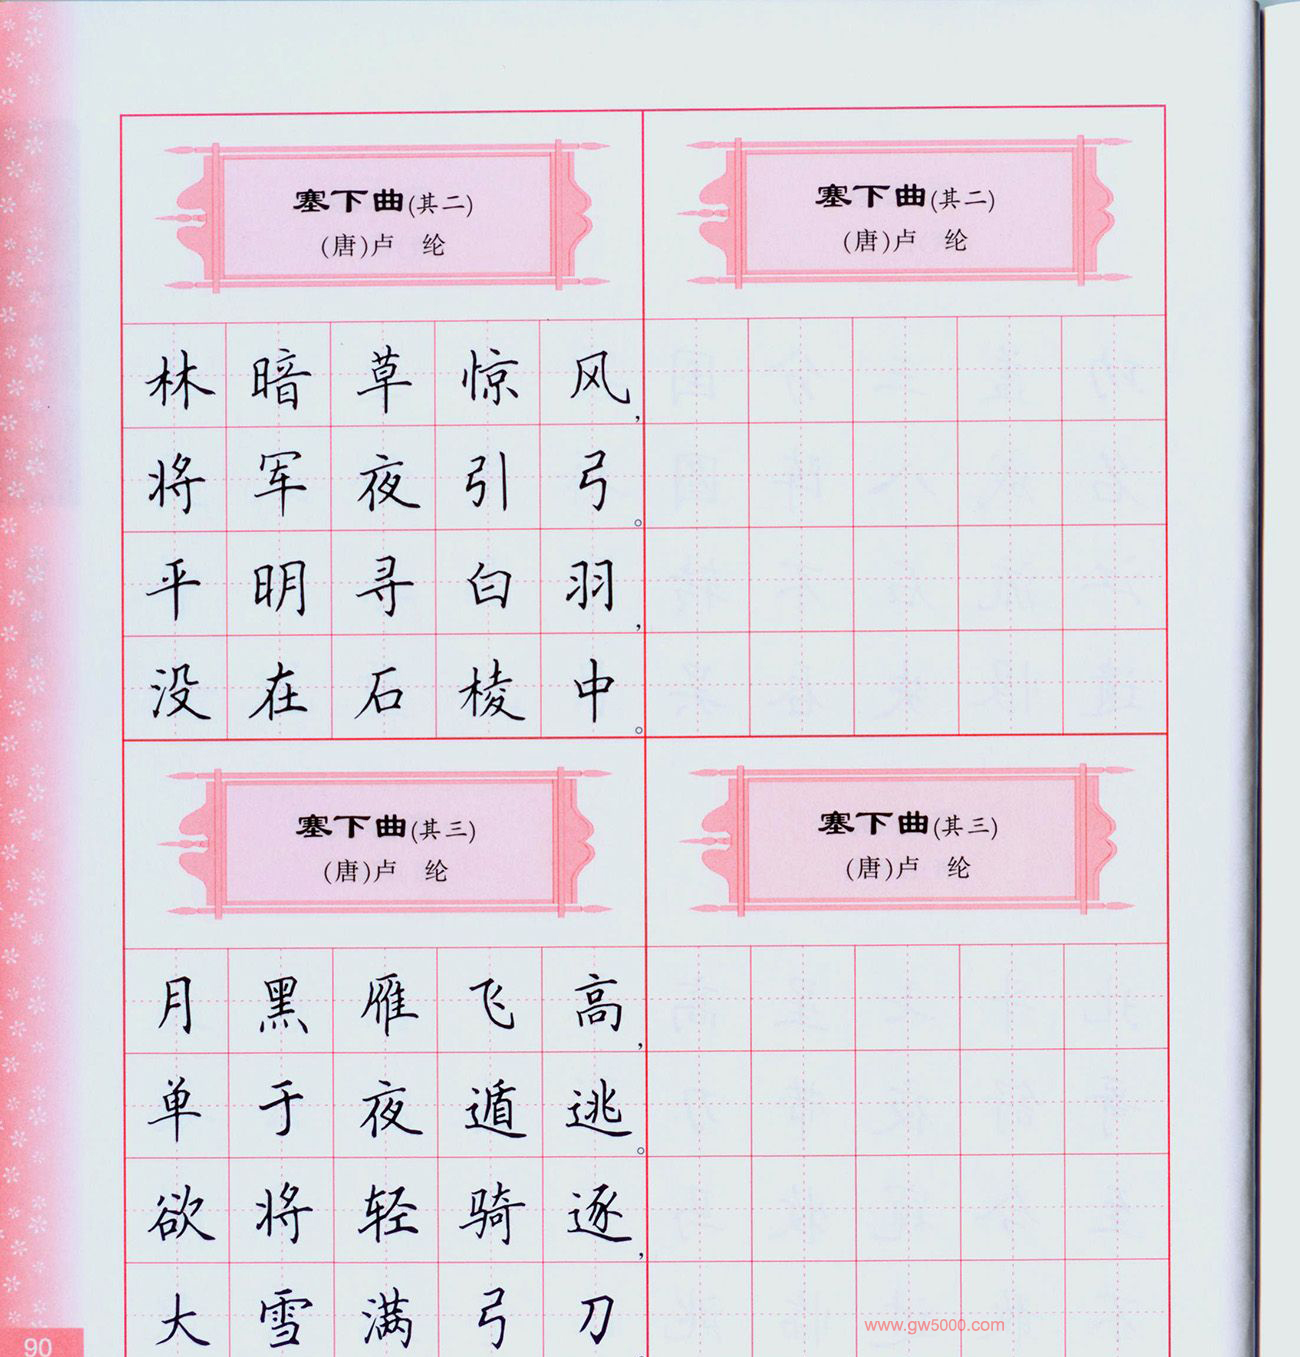 塞下曲(其二)
(唐)卢 纶
林暗草惊风,
将军夜引弓。
平明寻白羽,
没在石棱中。
塞下曲(其二)
(唐)卢 纶
塞下曲(其三)
(唐)卢 纶
月黑雁飞高,
单于夜遁逃。
欲将轻骑逐,
大雪满弓刀
塞下曲(其三)
(唐)卢 纶
www.gw5000.com
90